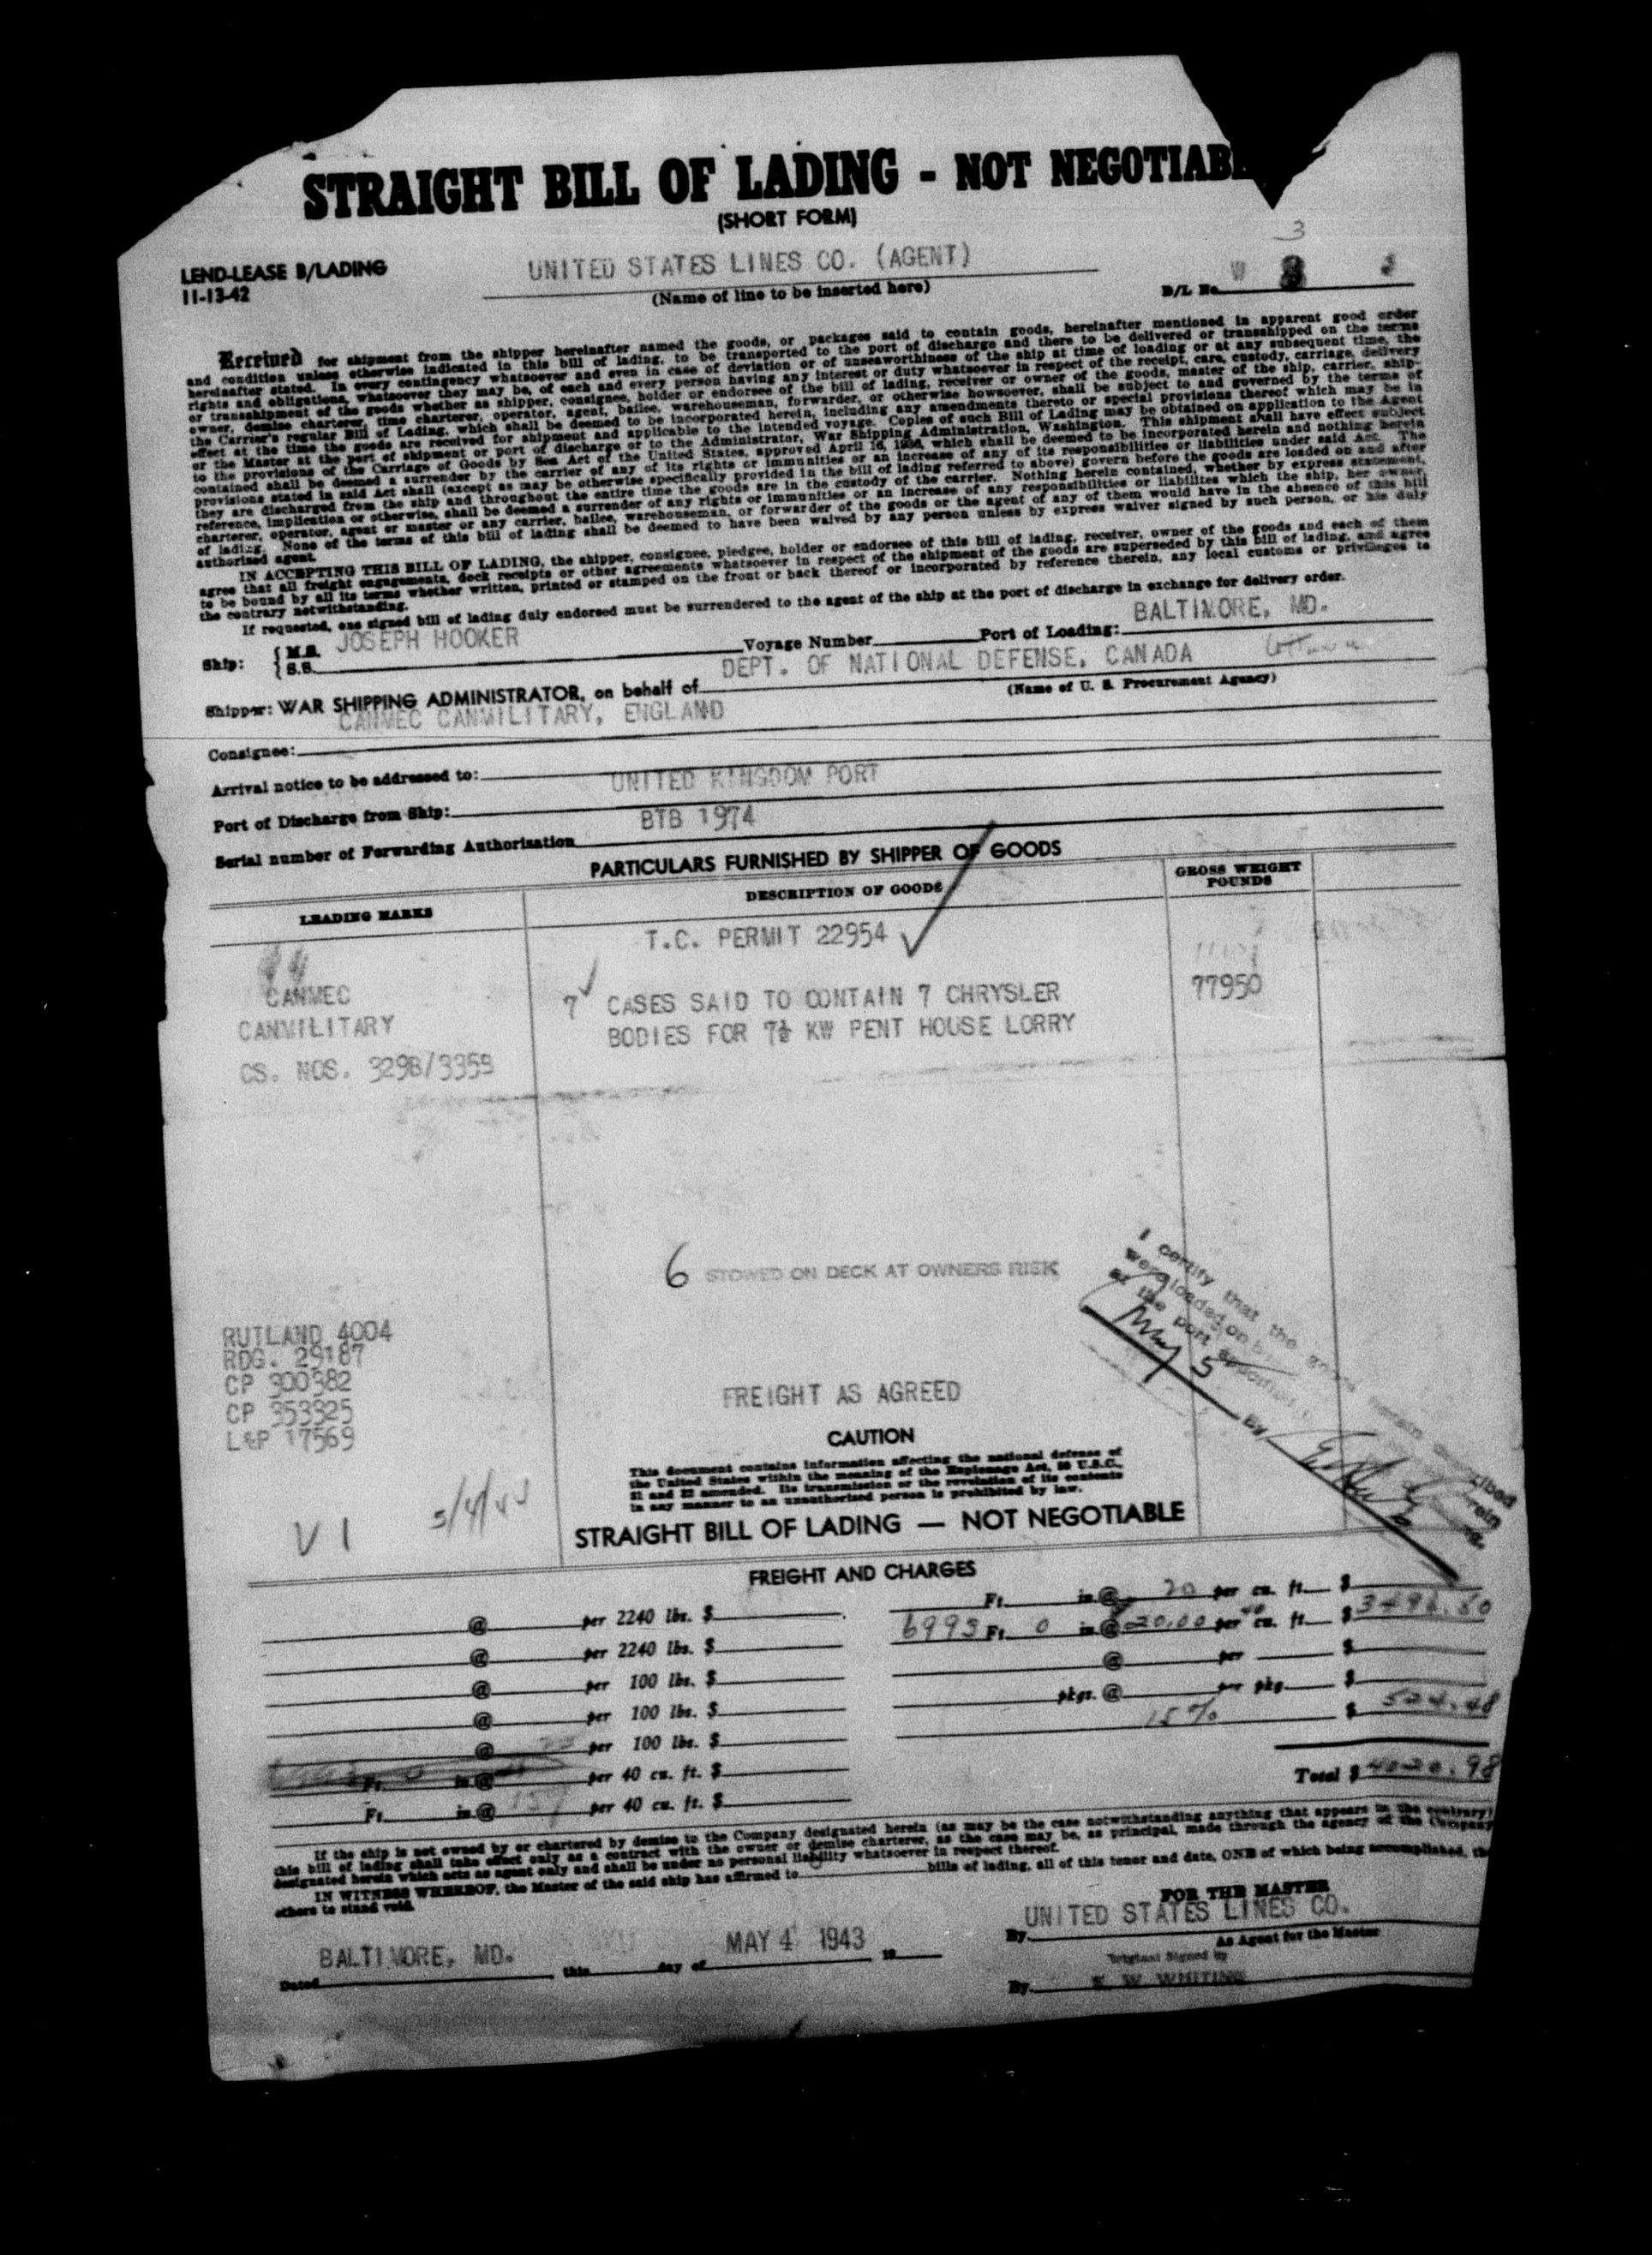 STRAIGHT BILL OF LADING - NOT NEGOTIAB
(SHORT FORM)
LEND-LEASE B/LADING
11-13-42
UNITED STATES LINES CO. (AGENT)
(Name of line to be inserted here)
3
B/L No. W
Received for shipment from the shipper hereinafter named the goods, or packages said to contain goods, hereinafter mentioned in apparent good order
and condition unless otherwise indicated in this bill of lading, to be transported to the port of discharge and there to be delivered or transshipped on the terms
hereinafter stated. In every contingency whatsoever and even in case of deviation or of unseaworthiness of the ship at time of loading or at any subsequent time, the
rights and obligations, whatsoever they may be, of each and every person having any interest or duty whatsoever in respect of the receipt, care, custody, carriage, delivery
or transshipment of the goods whether as shipper, consignee, holder or endorsee of the bill of lading, receiver or owner of the goods, master of the ship, carrier, ship-
owner, demise charterer, time charterer, operator, agent, bailee, warehouseman, forwarder, or otherwise howsoever, shall be subject to and governed by the terms of
the Carrier's regular Bill of Lading, which shall be deemed to be incorporated herein, including any amendments thereto or special provisions thereof which may be in
effect at the time the goods are received for shipment and applicable to the intended voyage. Copies of such Bill of Lading may be obtained on application to the Agent
or the Master at the port of shipment or port of discharge or to the Administrator, War Shipping Administration, Washington. This shipment shall have effect subject
to the provisions of the Carriage of Goods by Sea Act of the United States, approved April 16, 1936, which shall be deemed to be incorporated herein and nothing herein
contained shall be deemed a surrender by the carrier of any of its rights or immunities or an increase of any of its responsibilities or liabilities under said Act. The
provisions stated in said Act shall (except as may be otherwise specifically provided in the bill of lading referred to above) govern before the goods are loaded on and after
they are discharged from the ship and throughout the entire time the goods are in the custody of the carrier. Nothing herein contained, whether by express statement,
reference, implication or otherwise, shall be deemed a surrender of any rights or immunities or an increase of any responsibilities or liabilites which the ship, her owner,
charterer, operator, agent or master or any carrier, bailee, warehouseman, or forwarder of the goods or the agent of any of them would have in the absence of this bill
of lading. None of the terms of this bill of lading shall be deemed to have been waived by any person unless by express waiver signed by such person, or his duly
authorised agent.
IN ACCEPTING THIS BILL OF LADING, the shipper, consignee, pledgee, holder or endorsee of this bill of lading, receiver, owner of the goods and each of them
agree that all freight engagements, dock receipts or other agreements whatsoever in respect of the shipment of the goods are superseded by this bill of lading, and agree
to be bound by all its terms whether written, printed or stamped on the front or back thereof or incorporated by reference therein, any local customs or privileges to
the contrary notwithstanding.
If requested, one signed bill of lading duly endorsed must be surrendered to the agent of the ship at the port of discharge in exchange for delivery order.
Ship: { M.S. S.S. JOSEPH HOOKER Voyage Number Port of Loading: BALTIMORE, MD.
Shipper: WAR SHIPPING ADMINISTRATOR, on behalf of DEPT. OF NATIONAL DEFENSE, CANADA
(Name of U. S. Procurement Agency)
Consignee: CANMEC CANMILITARY, ENGLAND
Arrival notice to be addressed to:
Port of Discharge from Ship: UNITED KINGDOM PORT
Serial number of Forwarding Authorization BTB 1974
PARTICULARS FURNISHED BY SHIPPER OF GOODS
LEADING MARKS
DESCRIPTION OF GOODS
GROSS WEIGHT
POUNDS
T.C. PERMIT 22954
CANMEC
CANMILITARY
CS. NOS. 329B/335B
7 CASES SAID TO CONTAIN 7 CHRYSLER
BODIES FOR 7½ KW PENT HOUSE LORRY
77950
6 STOWED ON DECK AT OWNERS RISK
I certify that the goods herein described
were loaded on
at the port specified
May 5
By
RUTLAND 4004
RDG. 29187
CP 300382
CP 353325
L&P 17569
FREIGHT AS AGREED
V 1
5/4/44
CAUTION
This document contains information affecting the national defense of
the United States within the meaning of the Espionage Act, 50 U.S.C.,
31 and 32 amended. Its transmission or the revelation of its contents
in any manner to an unauthorized person is prohibited by law.
STRAIGHT BILL OF LADING — NOT NEGOTIABLE
FREIGHT AND CHARGES
@ per 2240 lbs. $
@ per 2240 lbs. $
@ per 100 lbs. $
@ per 100 lbs. $
@ per 100 lbs. $
Ft. in @ per 40 cu. ft. $
Ft. in @ per 40 cu. ft. $
Ft. in @ 20 per cu. ft. $
6993 Ft. 0 in @ 20.00 per 40 cu. ft. $ 3496.50
@ per $
pkgs. @ per pkg. $
15% $ 524.48
Total $ 4020.98
If the ship is not owned by or chartered by demise to the Company designated herein (as may be the case notwithstanding anything that appears in the contrary)
this bill of lading shall take effect only as a contract with the owner or demise charterer, as the case may be, as principal, made through the agency of the Company
designated herein which acts as agent only and shall be under no personal liability whatsoever in respect thereof.
IN WITNESS WHEREOF, the Master of the said ship has affirmed to bills of lading, all of this tenor and date, ONE of which being accomplished, the
others to stand void.
FOR THE MASTER
By UNITED STATES LINES CO.
As Agent for the Master
Dated BALTIMORE, MD. this day of MAY 4 1943 19
Original Signed By
By W WHITING